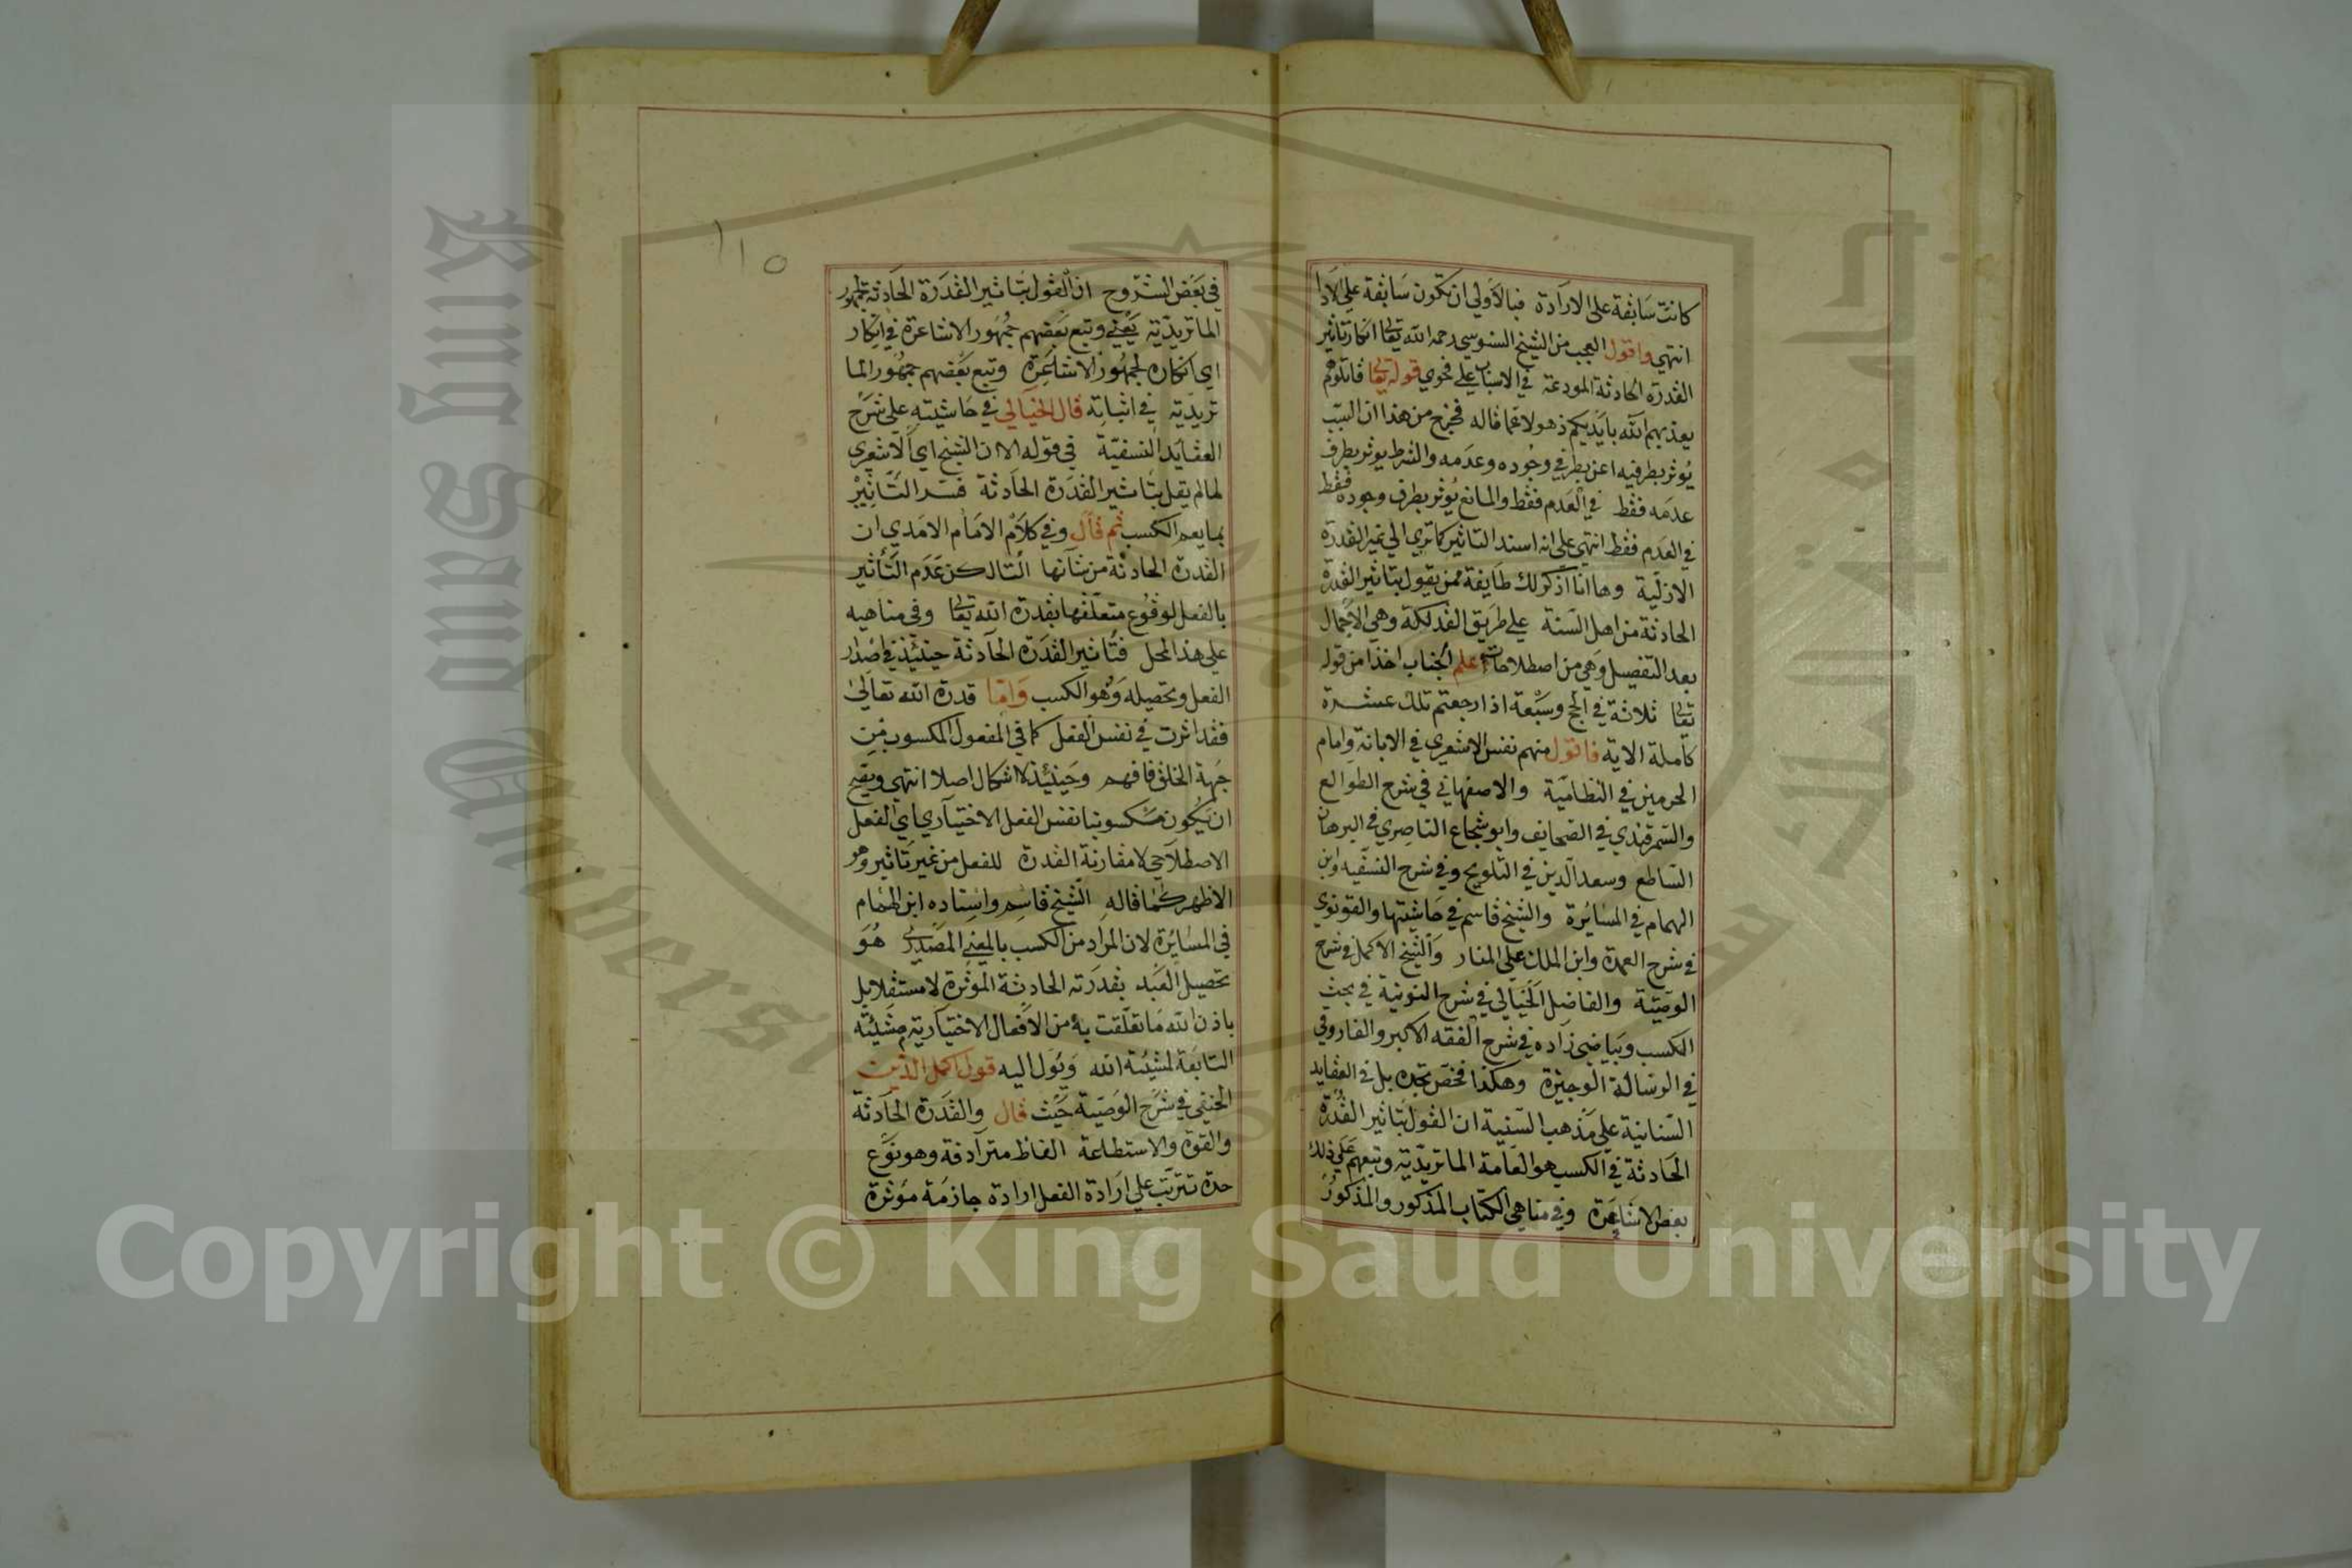 كانت سابقة على الارادة فبالاولي ان تكون سابقة على الادا
انتهي واقول العجب من الشيخ السنوسي رحمه الله تعالى انكار تاثير
القدرة الحادثة المودعة في الاسباب على فحوي قوله تعالى قاتلوهم
يعذبهم الله بايديكم ذهولا عما قاله فخرج من هذا ان السبب
يوثر بطرفيه اعن بطرفي وجوده وعدمه والشرط يوثر بطرف
عدمه فقط في العدم فقط والمانع يوثر بطرف وجوده فقط
في العدم فقط انتهي على انه اسند التاثير كما تري الي غير القدرة
الازلية وها انا اذكر لك طايفة ممن يقول بتاثير القدرة
الحادثة من اهل السنة على طريق الفدلكة وهي الاجمال
بعد التفصيل وهي من اصطلاحات علم الحساب اخذا من قوله
تعالى ثلاثة في الحج وسبعة اذا رجعتم تلك عشرة
كاملة الاية فاقول منهم نفس الاشعري في الابانة وامام
الحرمين في النظامية والاصفهاني في شرح الطوالع
والسمرقندي في الصحايف وابو شجاع الناصري في البرهان
الساطع وسعد الدين في التلويح وفي شرح النسفيه وابن
الهمام في المسايرة والشيخ قاسم في حاشيتها والقونوي
في شرح العمدة وابن الملك على المنار والشيخ الاكمل في شرح
الوصية والفاضل الخيالي في شرح النونية في بحث
الكسب وبياضي زاده في شرح الفقه الاكبر والفاروقي
في الرسالة الوجيزة وهكذا فخص تجده بل في العقايد
السنانية على مذهب السنية ان القول بتاثير القدرة
الحادثة في الكسب هو العامة الماتريدية وتبعهم على ذلك
بعض الاشاعرة وفي مناهي الكتاب المذكور والمذكور
١١٥
في بعض الشروح ان القول بتاثير القدرة الحادثة لجمهور
الماتريدية يعني وتبع بعضهم جمهور الاشاعرة في انكار
اي انكاره لجمهور الاشاعرة وتبع بعضهم جمهور الما
تريدية في اثباته قال الخيالي في حاشيته على شرح
العقايد النسفية في قوله الا ان الشيخ اي الاشعري
لما لم يقل بتاثير القدرة الحادثة فسر التاثير
بما يعم الكسب ثم قال وفي كلام الامام الامدي ان
القدرة الحادثة من شانها التا لكن عدم التاثير
بالفعل لوقوع متعلقها بقدرة الله تعالى وفي مناهيه
على هذا المحل فتاثير القدرة الحادثة حينئذ في اصدار
الفعل وتحصيله وهو الكسب واما قدرة الله تعالى
فقد اثرت في نفس الفعل كما في المفعول المكسوب من
جهة الخلق فافهم وحينئذ لا اشكال اصلا انتهي ويصح
ان يكون مكسوبنا نفس الفعل الاختياري اي الفعل
الاصطلاحي لا مقارنة القدرة للفعل من غير تاثير وهو
الاظهر كما قاله الشيخ قاسم واستاده ابن الهمام
في المسايرة لان المراد من الكسب بالمعني المصدري هو
تحصيل العبد بقدرته الحادثة الموثرة لا مستقلا بل
باذن الله ما تعلقت به من الافعال الاختيارية بمشيئته
التابعة لمشيئة الله ويول اليه قول اكمل الدين
الحنفي في شرح الوصية حيث قال والقدرة الحادثة
والقوة والاستطاعة الفاظ مترادفة وهو نوع
حدة تترتب على ارادة الفعل ارادة جازمة موثرة
Copyright © King Saud University
King Saud University